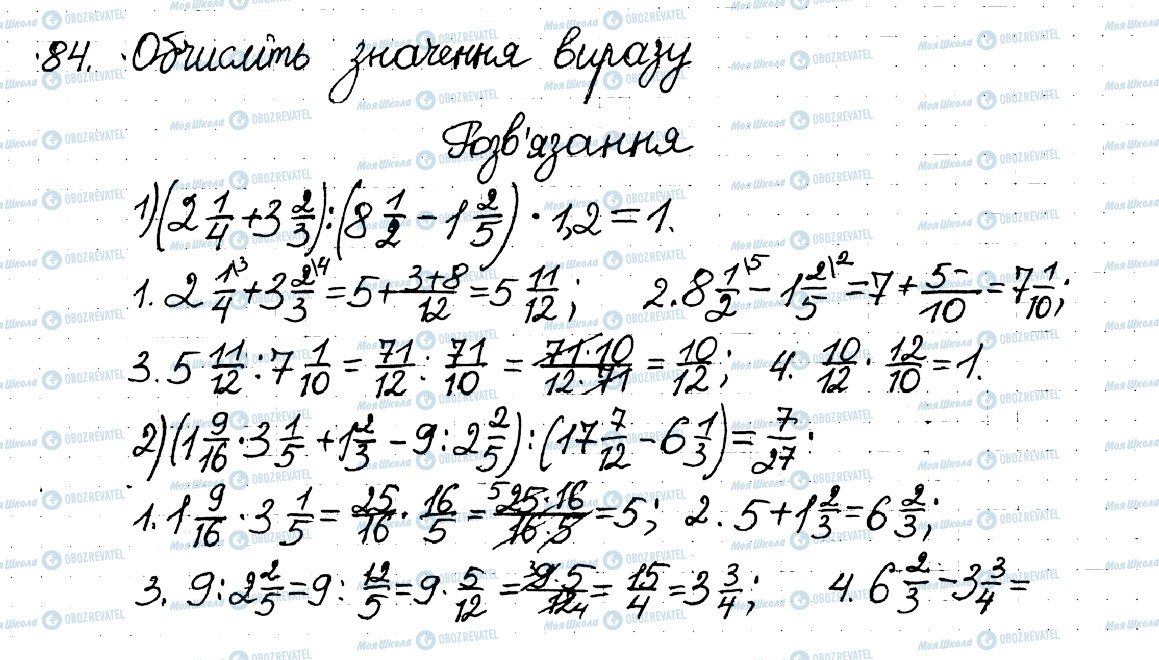 84. Обчисліть значення виразу
Розв'язання
1) (2 1/4 + 3 2/3) : (8 1/2 − 1 2/5) · 1,2 = 1.
1. 2 1/4\3 + 3 2/3\4 = 5 + (3+8)/12 = 5 11/12; 2. 8 1/2\5 − 1 2/5\2 = 7 + (5−)/10 = 7 1/10;
3. 5 11/12 : 7 1/10 = 71/12 : 71/10 = (71·10)/(12·71) = 10/12; 4. 10/12 · 12/10 = 1.
2) (1 9/16 · 3 1/5 + 1 2/3 − 9 : 2 2/5) : (17 7/12 − 6 1/3) = 7/27.
1. 1 9/16 · 3 1/5 = 25/16 · 16/5 = (5 25·16)/(16·5) = 5; 2. 5 + 1 2/3 = 6 2/3;
3. 9 : 2 2/5 = 9 : 12/5 = 9 · 5/12 = (3 9·5)/(12 4) = 15/4 = 3 3/4; 4. 6 2/3 − 3 3/4 =